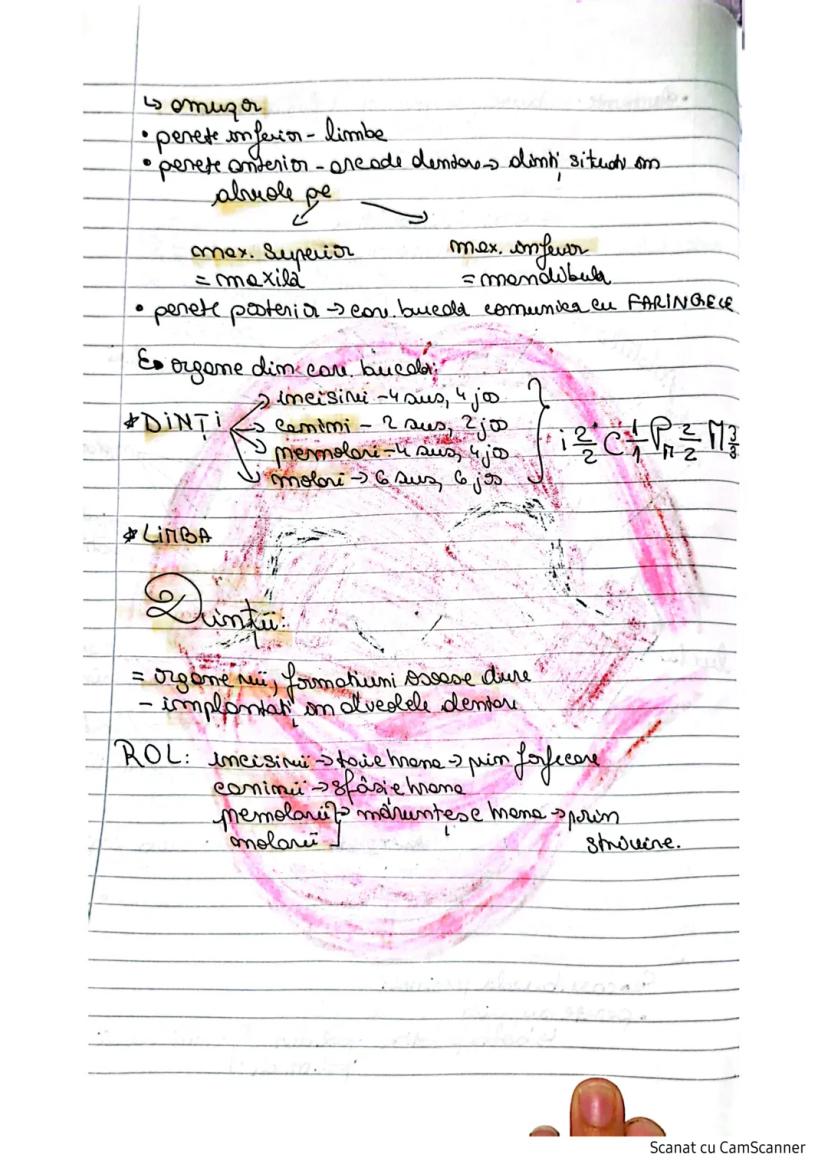 ↳ omușor
• perete inferior - limba
• perete anterior - arcade dentare → dinți situați în
alveole pe
max. superior max. inferior
= maxilă = mandibula
• perete posterior → cav. bucală comunică cu FARINGELE
organe din cav. bucală:
incisivi - 4 sus, 4 jos
* DINȚI canini - 2 sus, 2 jos i 2/2 C 1/1 Pm 2/2 M 3/3
premolari - 4 sus, 4 jos
molari → 6 sus, 6 jos
* LIMBA
Dinții:
= organe vii, formațiuni osoase dure
- implantați în alveolele dentare
ROL: incisivii → taie hrana → prin forfecare
caninii → sfâșie hrana
premolarii mărunțesc hrana → prin
molarii strivire.
Scanat cu CamScanner